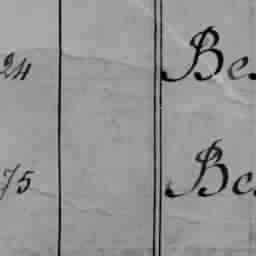 24 Be
75 Be